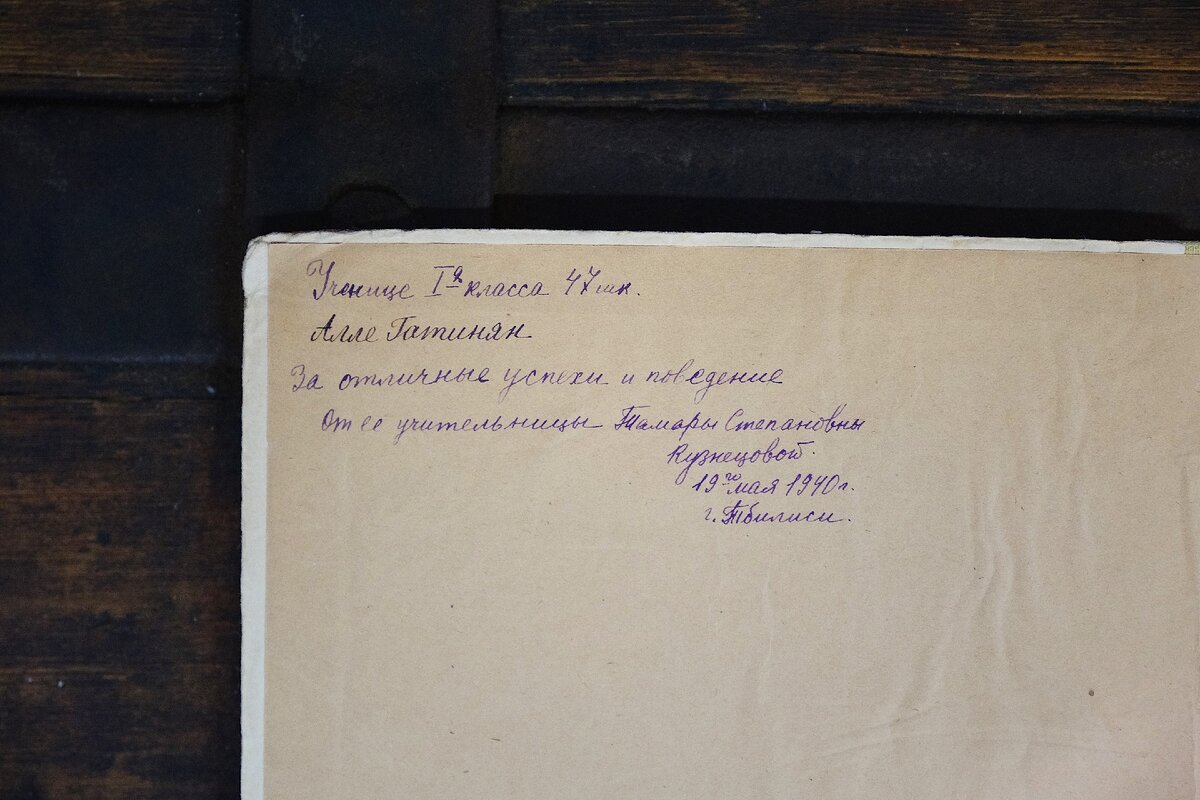 Ученице Iа класса 47 шк.
Алле Гатинян
За отличные успехи и поведение
От её учительницы Тамары Степановны
Кузнецовой.
19го мая 1940 г.
г. Тбилиси.